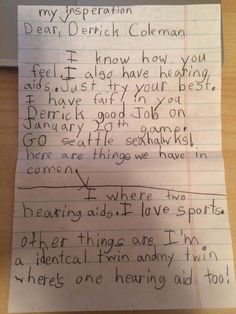 my Insperation
Dear, Derrick Coleman
I know how you
feel I also have hearing
aids. Just try your best.
I have fait in you
Derrick good Job on
January 20th game.
GO seattle seahawks!
here are things we have in
comen.
I where two
hearing aids. I love sports.
other things are I'm
a identcal twin and my twin
where's one hearing aid too!